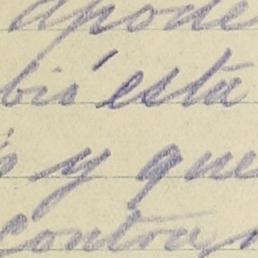 apode
bió esta
s y que
contra